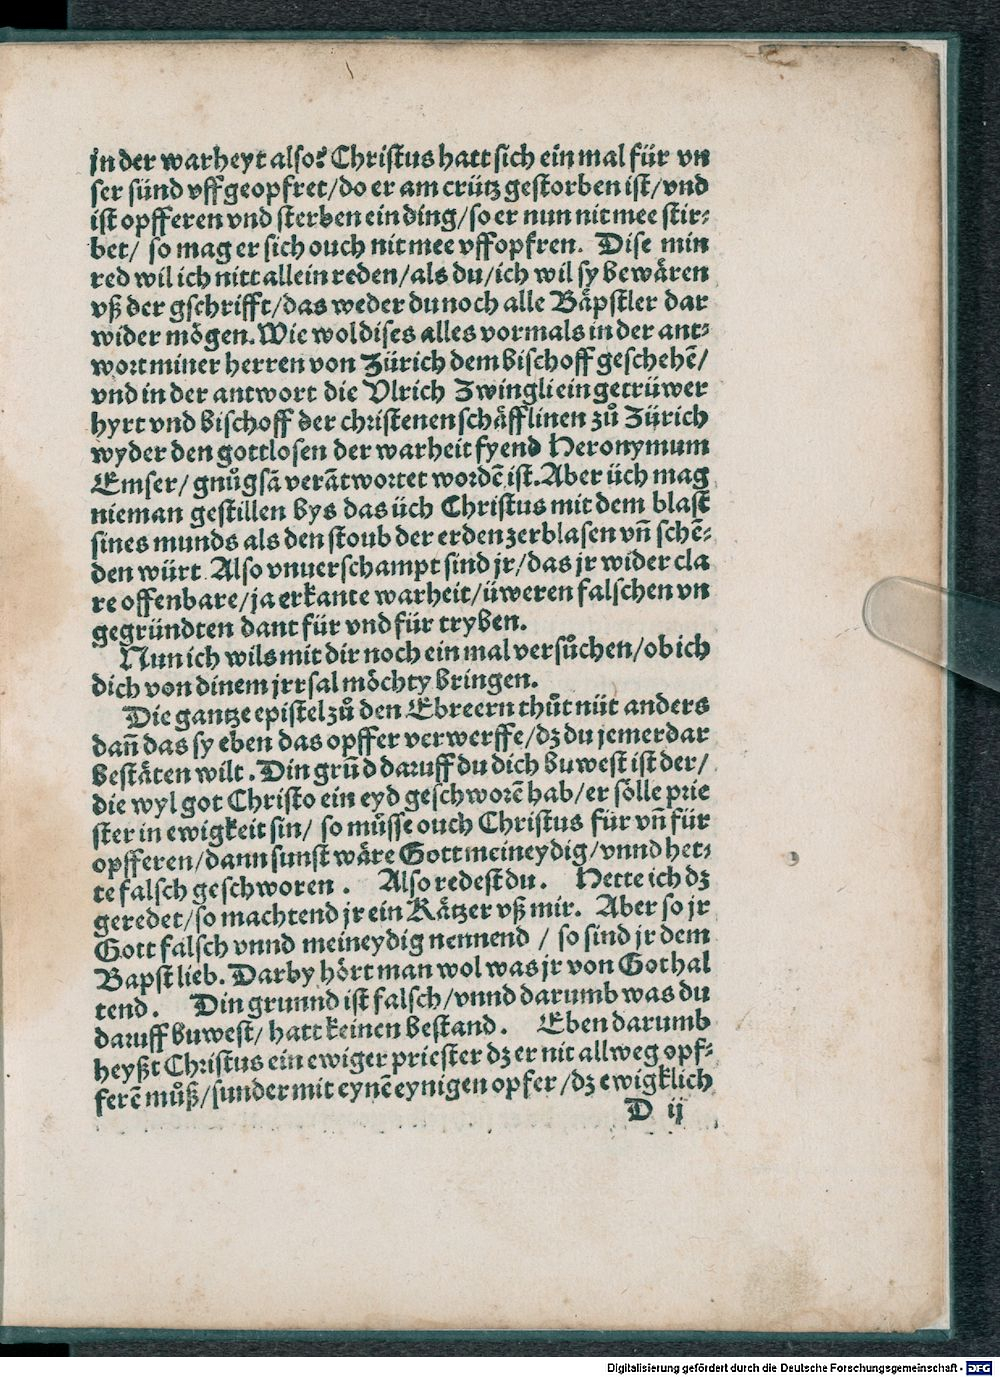 in der warheyt also? Christus hatt sich ein mal für vn
ser sünd vffgeopfret/do er am crütz gestorben ist/vnd
ist opfferen vnd sterben ein ding/so er nun nit mee stir⸗
bet/ so mag er sich ouch nit mee vffopfren. Dise min
red wil ich nitt allein reden/als du/ich wil sy bewären
vß der gschrifft/das weder du noch alle Bäpstler dar
wider mögen. Wie wol dises alles vormals in der ant⸗
wort miner herren von Zürich dem bischoff geschehē/
vnd in der antwort die Vlrich Zwingli ein getrüwer
hyrt vnd bischoff der christenen schäfflinen zů Zürich
wyder den gottlosen der warheit fyend Heronymum
Emser/ gnůgsā verātwortet wordē ist. Aber üch mag
nieman gestillen bys das üch Christus mit dem blast
sines munds als den stoub der erden zerblasen vñ schē⸗
den würt. Also vnuerschampt sind jr/das jr wider cla
re offenbare/ja erkante warheit/üweren falschen vn
gegründten dant für vnd für tryben.
Nun ich wils mit dir noch ein mal versůchen/ob ich
dich von dinem jrrsal möchty bringen.
Die gantze epistel zů den Ebreern thůt nüt anders
dañ das sy eben das opffer verwerffe/dz du jemerdar
bestäten wilt. Din grūd daruff du dich buwest ist der/
die wyl got Christo ein eyd geschworē hab/er sölle prie
ster in ewigkeit sin/ so müsse ouch Christus für vñ für
opfferen/dann sunst wäre Gott meineydig/vnnd het⸗
te falsch geschworen. Also redest du. Hette ich dz
geredet/so machtend jr ein Kätzer vß mir. Aber so jr
Gott falsch vnnd meineydig nennend / so sind jr dem
Bapst lieb. Darby hört man wol was jr von Got hal
tend. Din grunnd ist falsch/vnnd darumb was du
daruff buwest/ hatt keinen bestand. Eben darumb
heyßt Christus ein ewiger priester dz er nit allweg opf⸗
ferē můß/sunder mit eynē eynigen opfer/dz ewigklich
D ij
Digitalisierung gefördert durch die Deutsche Forschungsgemeinschaft - DFG